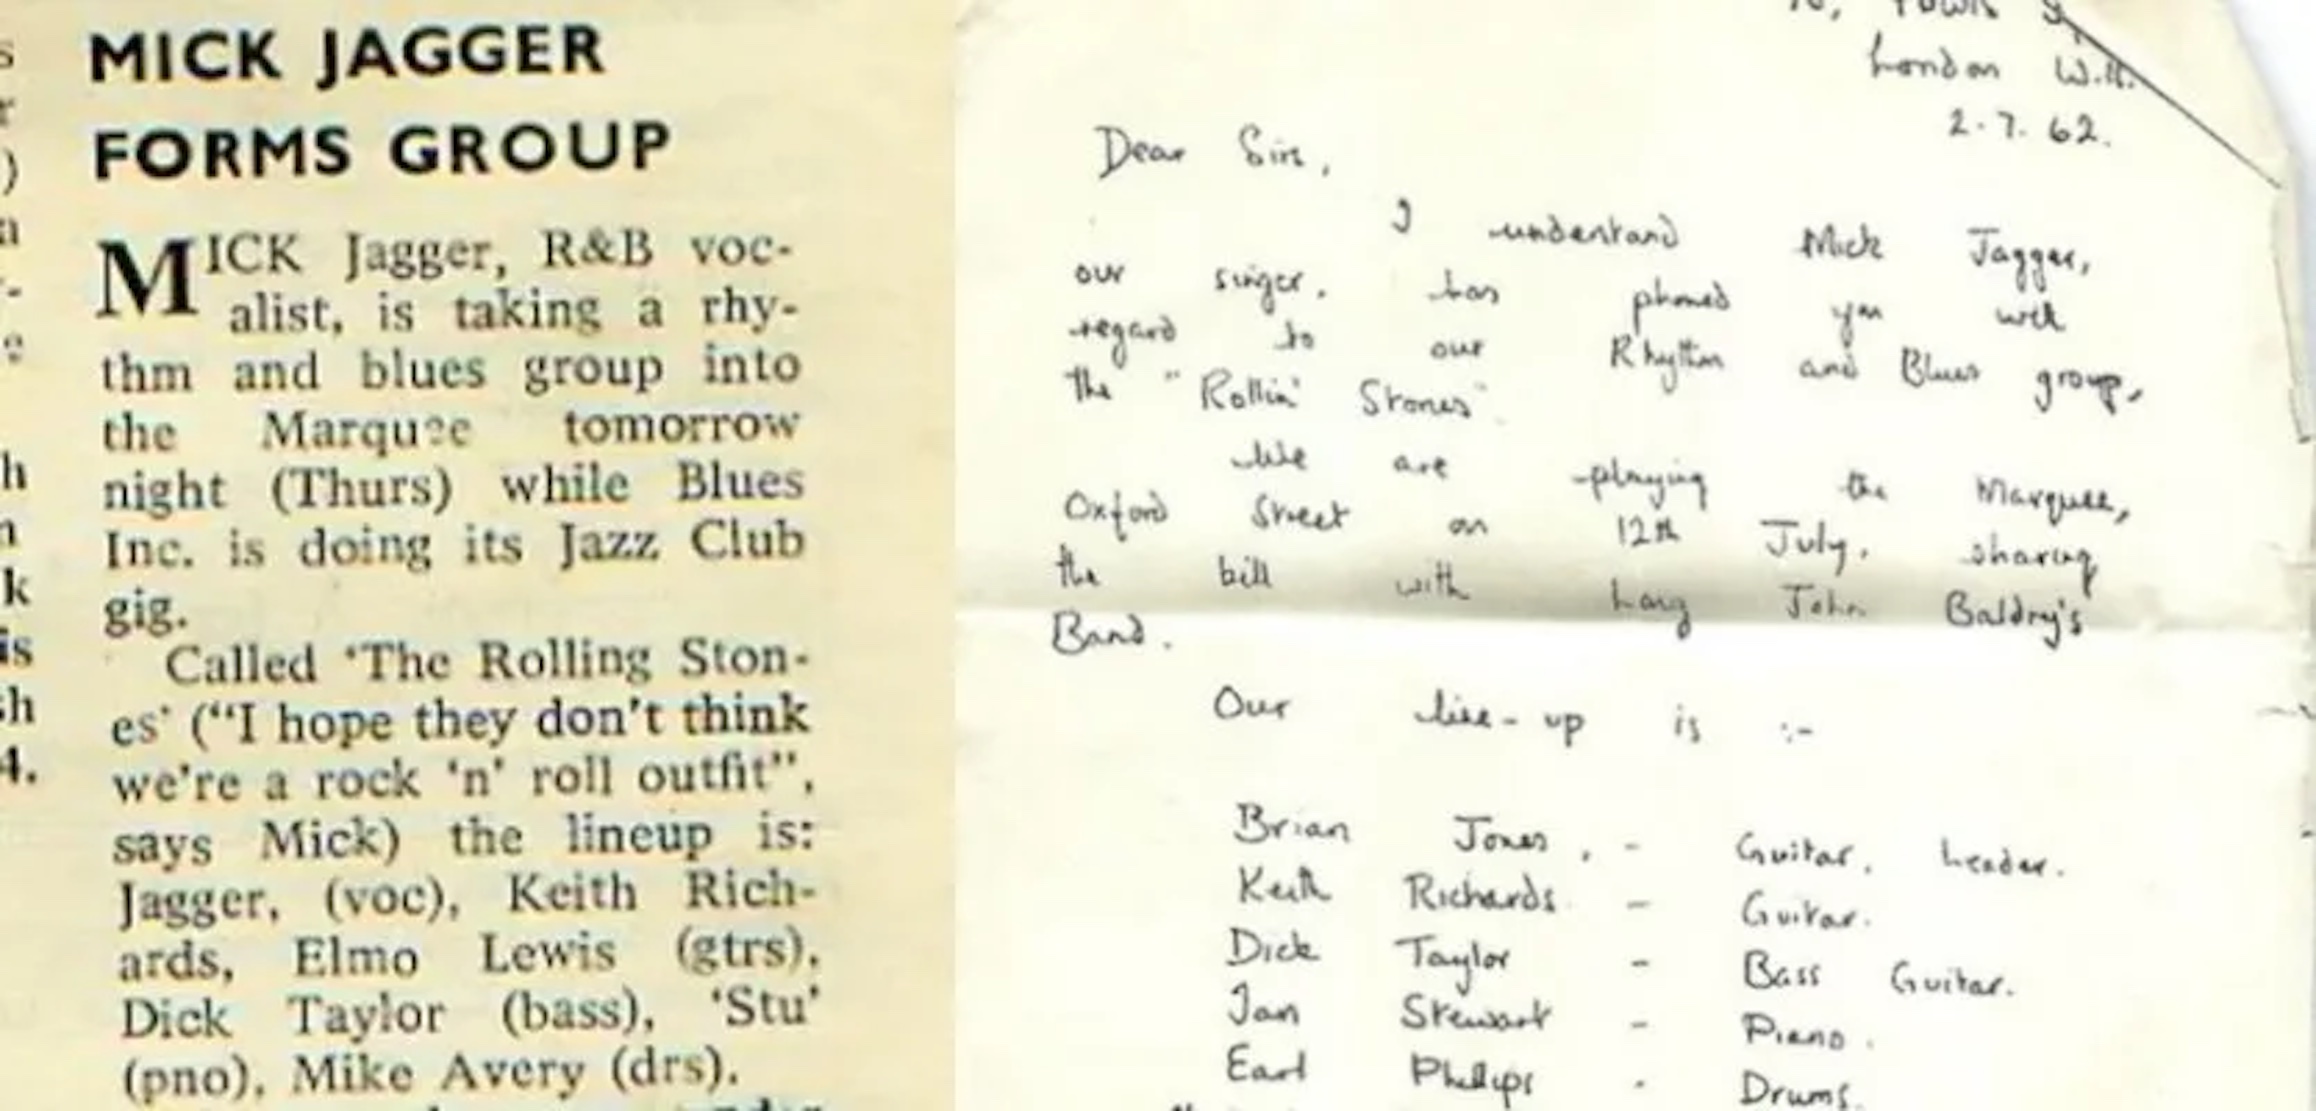 MICK JAGGER
FORMS GROUP
MICK Jagger, R&B voc-
alist, is taking a rhy-
thm and blues group into
the Marquee tomorrow
night (Thurs) while Blues
Inc. is doing its Jazz Club
gig.
Called 'The Rolling Ston-
es' ("I hope they don't think
we're a rock 'n' roll outfit",
says Mick) the lineup is:
Jagger, (voc), Keith Rich-
ards, Elmo Lewis (gtrs),
Dick Taylor (bass), 'Stu'
(pno), Mike Avery (drs).
London W.11.
2.7.62.
Dear Sirs,
I understand Mick Jagger,
our singer, has phoned you with
regard to our Rhythm and Blues group,
the "Rollin' Stones".
We are playing the Marquee,
Oxford Street on 12th July, sharing
the bill with Long John Baldry's
Band.
Our line-up is :-
Brian Jones, - Guitar. Leader.
Keith Richards - Guitar.
Dick Taylor - Bass Guitar.
Ian Stewart - Piano.
Earl Phillips - Drums.